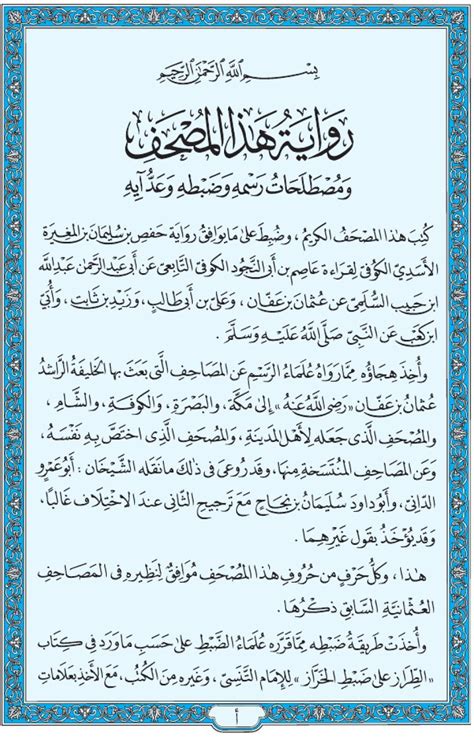 بِسْمِ اللَّهِ الرَّحْمَٰنِ الرَّحِيمِ
رِوَايَةُ هَذَا المُصْحَفِ
وَمُصْطَلَحَاتُ رَسْمِهِ وَضَبْطِهِ وَعَدِّ آيِهِ
كُتِبَ هَذَا المُصْحَفُ الكَرِيمُ ، وَضُبِطَ عَلَى مَا يُوَافِقُ رِوَايَةَ حَفْصِ بْنِ سُلَيْمَانَ بْنِ المُغِيرَةِ
الأَسَدِيِّ الكُوفِيِّ لِقِرَاءَةِ عَاصِمِ بْنِ أَبِي النَّجُودِ الكُوفِيِّ التَّابِعِيِّ عَنْ أَبِي عَبْدِ الرَّحْمَنِ عَبْدِ اللَّهِ
ابْنِ حَبِيبٍ السُّلَمِيِّ عَنْ عُثْمَانَ بْنِ عَفَّانَ ، وَعَلِيِّ بْنِ أَبِي طَالِبٍ ، وَزَيْدِ بْنِ ثَابِتٍ ، وَأُبَيِّ
ابْنِ كَعْبٍ عَنِ النَّبِيِّ صَلَّى اللَّهُ عَلَيْهِ وَسَلَّمَ .
وَأُخِذَ هِجَاؤُهُ مِمَّا رَوَاهُ عُلَمَاءُ الرَّسْمِ عَنِ المَصَاحِفِ الَّتِي بَعَثَ بِهَا الخَلِيفَةُ الرَّاشِدُ
عُثْمَانُ بْنُ عَفَّانَ «رَضِيَ اللَّهُ عَنْهُ» إِلَى مَكَّةَ ، وَالبَصْرَةِ ، وَالكُوفَةِ ، وَالشَّامِ ،
وَالمُصْحَفِ الَّذِي جَعَلَهُ لِأَهْلِ المَدِينَةِ ، وَالمُصْحَفِ الَّذِي اخْتَصَّ بِهِ نَفْسَهُ ،
وَعَنِ المَصَاحِفِ المُنْتَسَخَةِ مِنْهَا ، وَقَدْ رُوعِيَ فِي ذَلِكَ مَا نَقَلَهُ الشَّيْخَانِ : أَبُو عَمْرٍو
الدَّانِيُّ ، وَأَبُو دَاوُدَ سُلَيْمَانُ بْنُ نَجَاحٍ مَعَ تَرْجِيحِ الثَّانِي عِنْدَ الاخْتِلَافِ غَالِبًا ،
وَقَدْ يُؤْخَذُ بِقَوْلِ غَيْرِهِمَا .
هَذَا ، وَكُلُّ حَرْفٍ مِنْ حُرُوفِ هَذَا المُصْحَفِ مُوَافِقٌ لِنَظِيرِهِ فِي المَصَاحِفِ
العُثْمَانِيَّةِ السَّابِقِ ذِكْرُهَا .
وَأُخِذَتْ طَرِيقَةُ ضَبْطِهِ مِمَّا قَرَّرَهُ عُلَمَاءُ الضَّبْطِ عَلَى حَسَبِ مَا وَرَدَ فِي كِتَابِ
«الطِّرَازِ عَلَى ضَبْطِ الخَرَّازِ» لِلإِمَامِ التَّنَسِيِّ ، وَغَيْرِهِ مِنَ الكُتُبِ ، مَعَ الأَخْذِ بِعَلَامَاتِ
أ